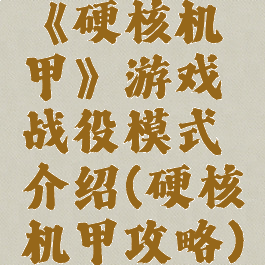 《硬核机
甲》游戏
战役模式
介绍(硬核
机甲攻略)